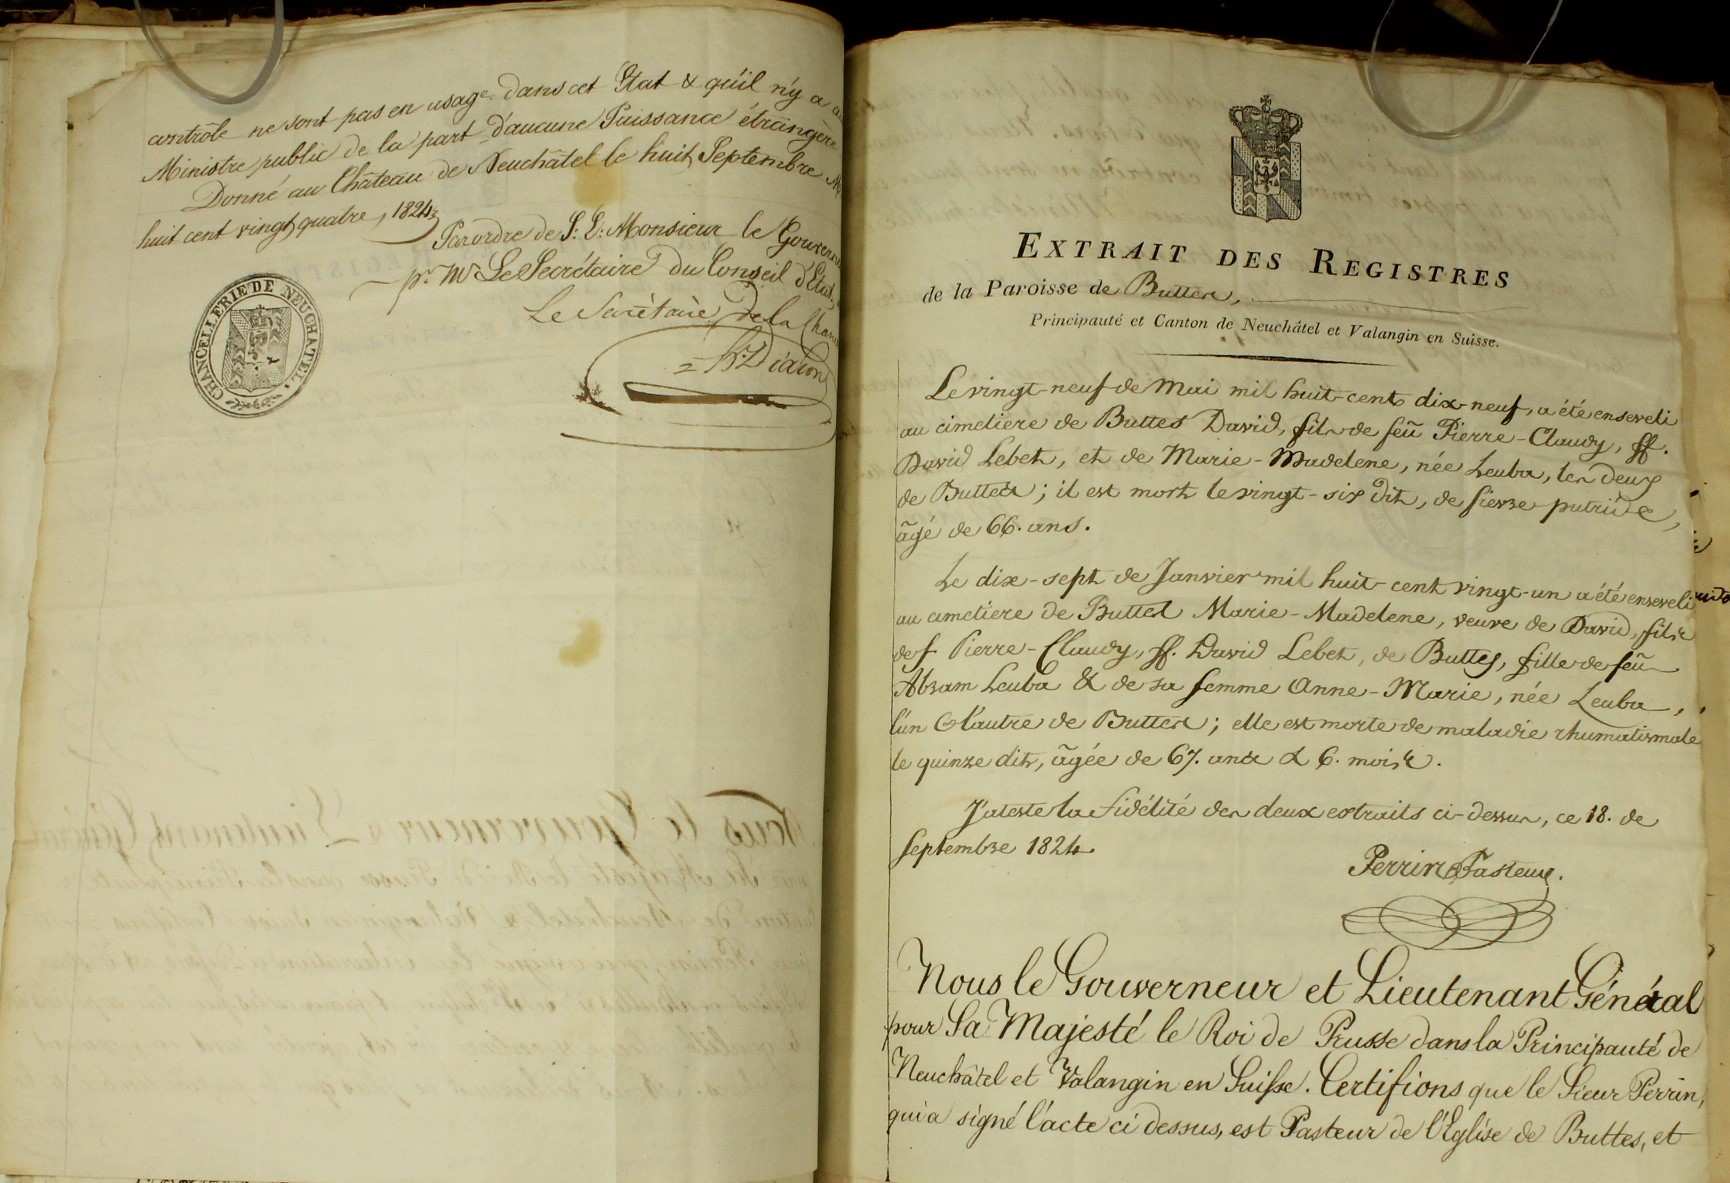 contrôle ne sont pas en usage dans cet Etat & qu'il n'y a
Ministre public de la part d'aucune Puissance étrangère
Donné au Château de Neuchâtel le huit Septembre
huit cent vingt quatre, 1824.
Par ordre de S: E: Monsieur le Gouverneur
pr. Mr. Le Secrétaire du Conseil d'Etat,
Le Secrétaire de la
CHANCELLERIE DE NEUCHATEL
EXTRAIT DES REGISTRES
de la Paroisse de Buttes,
Principauté et Canton de Neuchâtel et Valangin en Suisse.
Le vingt-neuf de Mai mil huit-cent dix-neuf, a été enseveli
au cimetiere de Buttes David, fils de feu Pierre-Claudy, ff.
David Lebet, et de Marie-Madelene, née Leuba, les deux
de Buttes; il est mort le vingt-six dit, de fievre putride,
âgé de 66. ans.
Le dix-sept de Janvier mil huit-cent vingt-un a été enseveli
au cimetiere de Buttes Marie-Madelene, veuve de David, fils
de f. Pierre-Claudy, ff. David Lebet, de Buttes, fille de feu
Abram Leuba & de sa femme Anne-Marie, née Leuba,
l'un & l'autre de Buttes; elle est morte de maladie rhumatismale
le quinze dit, âgée de 67. ans & 6. mois.
J'ateste la fidélité des deux extraits ci-dessus, ce 18. de
Septembre 1824.
Perrin Pasteur.
Nous le Gouverneur et Lieutenant Général
pour Sa Majesté le Roi de Prusse dans la Principauté de
Neuchâtel et Valangin en Suisse. Certifions que le Sieur Perrin,
qui a signé l'acte ci dessus, est Pasteur de l'Eglise de Buttes, et